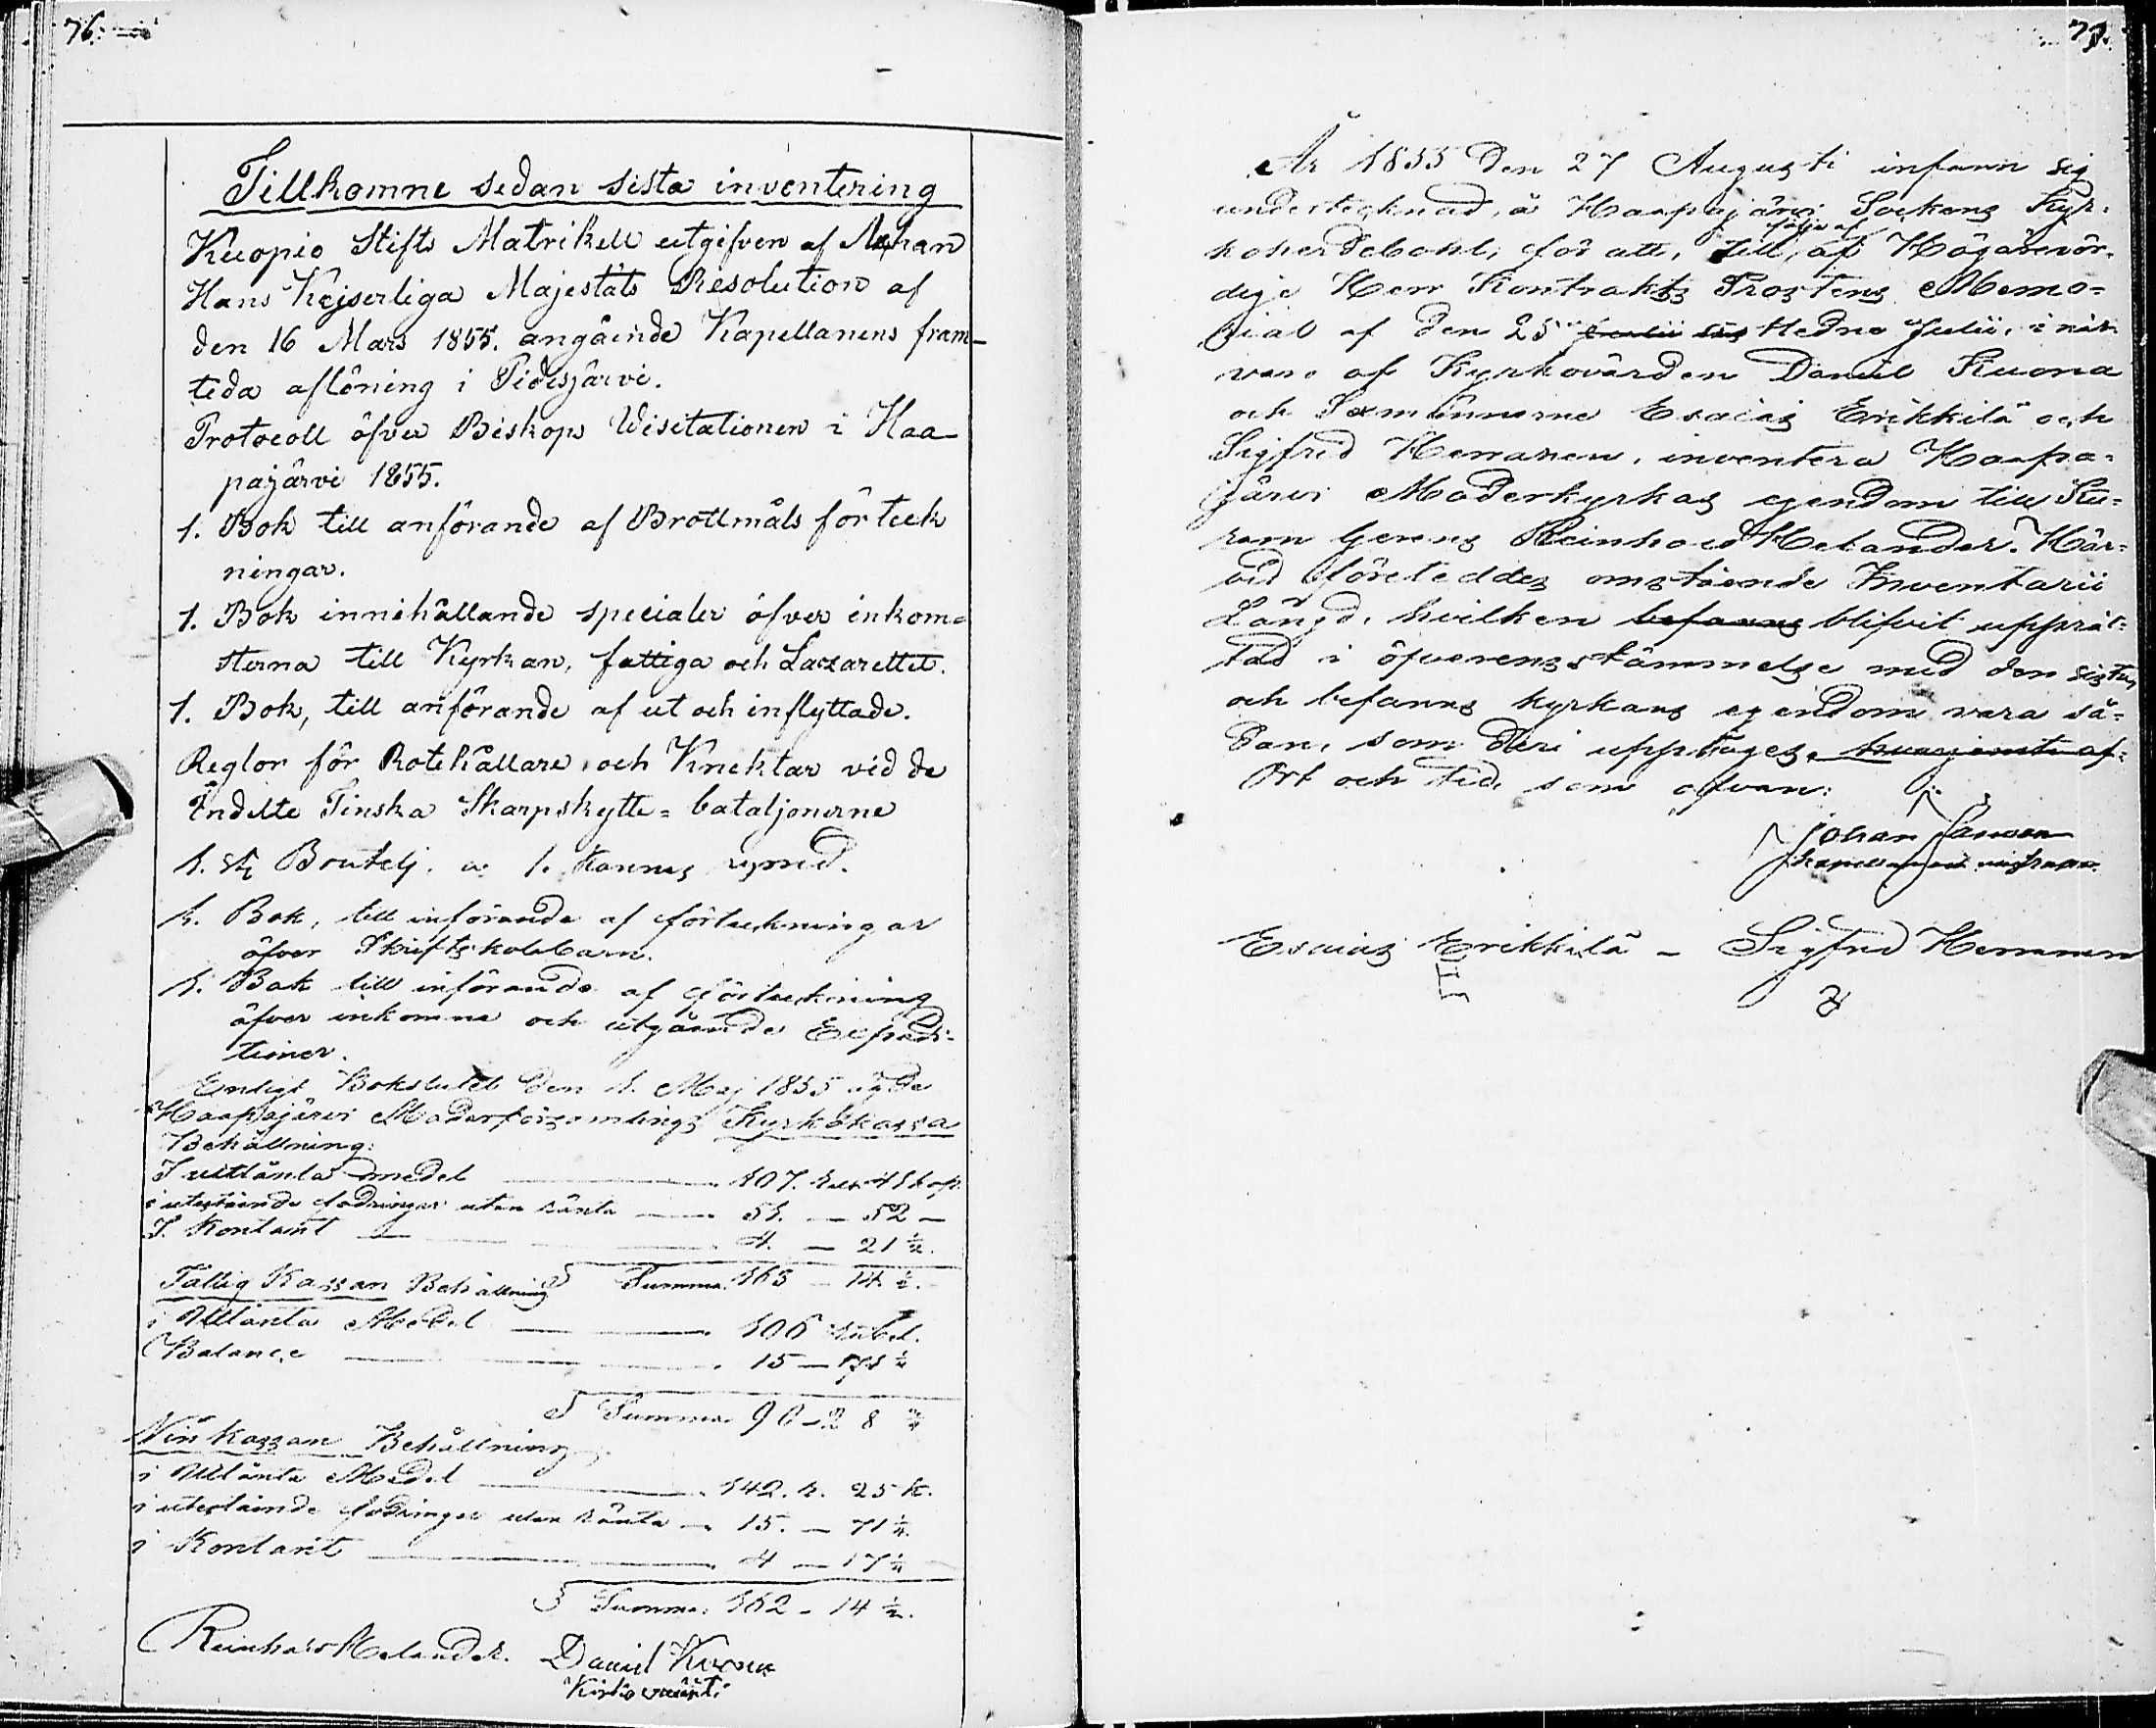 76.
Tillkomne sedan sista inventering
Kuopio Stifts Matrikell utgifven af
Hans Kejserliga Majestäts Resolution af
den 16 Mars 1855. angående Kapellanens fram-
tida aflöning i Pidisjärvi.
Protocoll öfver Biskops Visitationen i Haa-
pajärvi 1855.
1. Bok till anförande af Brottmåls förteck
ningar.
1. Bok innehållande specialer öfver inkom-
sterna till Kyrkan, fattiga och Lazarettet.
1. Bok, till anförande af ut och inflyttade.
Reglor för Rotehållare och Knektar vid de
Indelte Finska Skarpskytte=bataljonerne
1. st Boutelj. a 1. Kannas rymd.
1. Bok, till införande af förteckningar
öfver Skriftskolebarn.
1. Bok till införande af förteckning
öfver inkomne och utgående Expedi-
tioner.
Enligt Bokslutet den 1. Maj 1855 ägde
Haapajärvi Moderförsamlings Kyrkokassa
Behållning:
I utlånta medel 107. 41 kop.
i utestående fodringar utan ränta 51. — 52 —
I Kontant 4. — 21 ½.
Summa 163 — 14 ½.
Fattig Kassan Behållning
i Utlånta Medel 106 rubel.
Balance 15 —
Summa
Vin kassan Behållning
i Utlånta Medel 142. r. 25 k.
i utestående fodringar utan ränta — 15. — 71 ½
i Kontant 4 — 17
Summa 162 — 14 ½.
Reinhold Helander. Daniel Kuona
År 1855 den 27 Augusti infann sig
undertecknad, å Haapajärvi Sockens Kyr-
koherdebohl, för att, till följe af Högärevör-
dige Herr Kontrakts Prostens Memo-
rial af den 25 sistledne Julii, i när
varo af Kyrkovärden Daniel Kuona
och Sexmännerne Esaias Erikkilä och
Sigfrid Hemanen, inventera Haapa-
järvi Moderkyrkas egendom till Ku-
ram Gerens Reinhold Helander. Här-
vid företeddes omstående Inventarii
Längd, hvilken befanns blifvit upprät-
tad i öfverensstämmelse med den sista,
och befanns kyrkans egendom vara så-
dan, som deri upptages.
Ort och tid, som ofvan:
Johan
Esaias Erikkilä — Sigfrid Hemanen